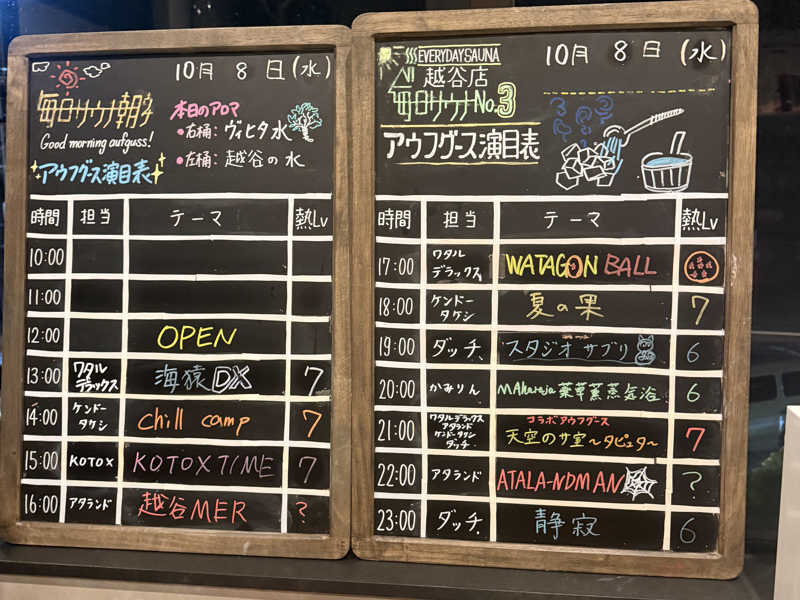 10月 8日(水)
毎日サウナ朝
Good morning aufguss!
アウフグース演目表
本日のアロマ
・右桶:ヴィヒタ水
・左桶:越谷の水
時間 担当 テーマ 熱Lv
10:00
11:00
12:00 OPEN
13:00 ワタルデラックス 海猿DX 7
14:00 ケンドータケシ chill camp 7
15:00 KOTOX KOTOXTIME 7
16:00 アタランド 越谷MER ?
EVERYDAYSAUNA
越谷店
毎日サウナNo.3
10月 8日(水)
アウフグース演目表
時間 担当 テーマ 熱Lv
17:00 ワタルデラックス WATAGON BALL
18:00 ケンドータケシ 夏の果 7
19:00 ダッチ、 スタジオサブリ 6
20:00 かみりん MAharaja薬草薫蒸気浴 6
21:00 ワタルデラックス アタランド ケンドータケシ ダッチ、 コラボアウフグース 天空のサ室〜タピュタ〜 7
22:00 アタランド ATALA-NDMAN ?
23:00 ダッチ、 静寂 6